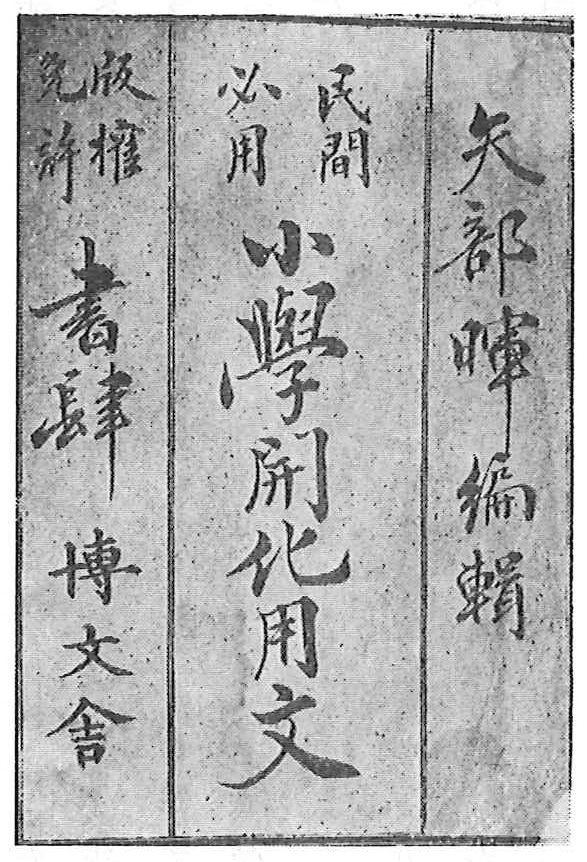 矢部暉編輯
民間
必用
小學開化用文
版権
免許
書肆 博文舎